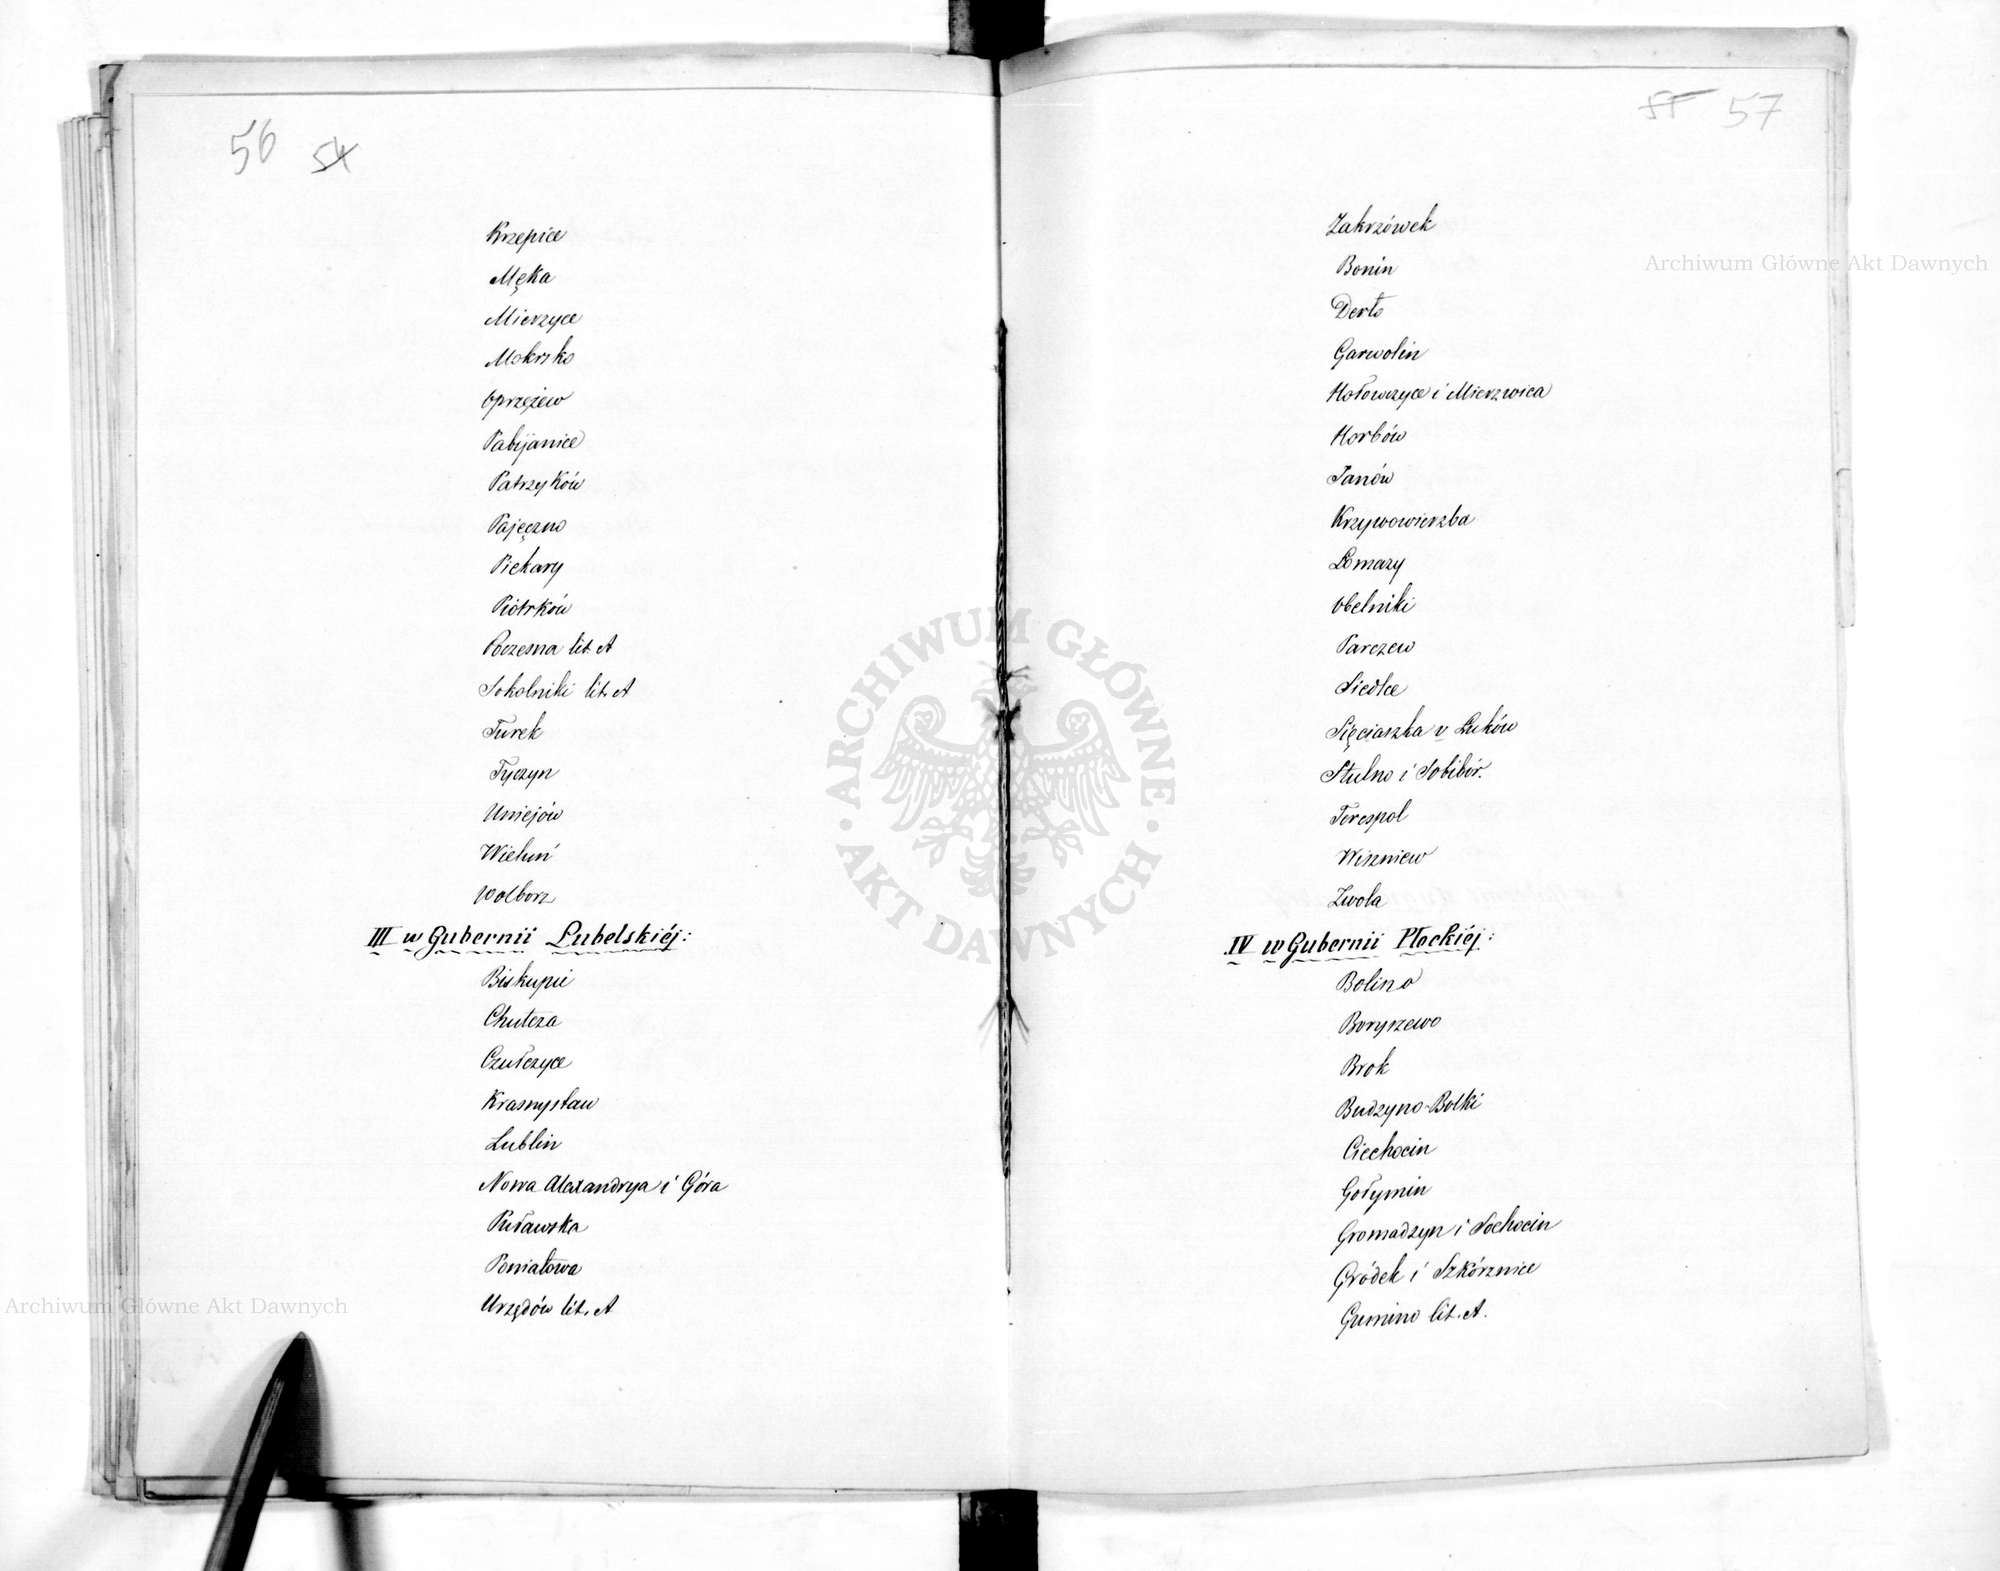 56 54
Krzepice
Męka
Mierzyce
Mokrsko
Oprzężew
Pabijanice
Patrzyków
Pajęczno
Piekary
Piotrków
Poczesna lit. A
Sokolniki lit. A
Turek
Tyczyn
Uniejów
Wieluń
Wolborz
III w Gubernii Lubelskiéj:
Biskupie
Chutcza
Czułczyce
Krasnystaw
Lublin
Nowa Alexandrya i Góra
Puławska
Poniatowa
Urzędów lit. A
55 57
Zakrzówek
Bonin
Derło
Garwolin
Hołowczyce i Mierzwica
Horbów
Janów
Krzywowierzba
Łomazy
Obelniki
Parczew
Siedlce
Sięciaszka v Łuków
Stulno i Sobibór.
Terespol
Wiszniew
Zwola
IV w Gubernii Płockiéj:
Bolino
Boryszewo
Brok
Budzyno-Bolki
Ciechocin
Gołymin
Gromadzyn i Sochocin
Gródek i Szkórznice
Gumino lit. A.
Archiwum Główne Akt Dawnych
ARCHIWUM GŁÓWNE AKT DAWNYCH
Archiwum Główne Akt Dawnych